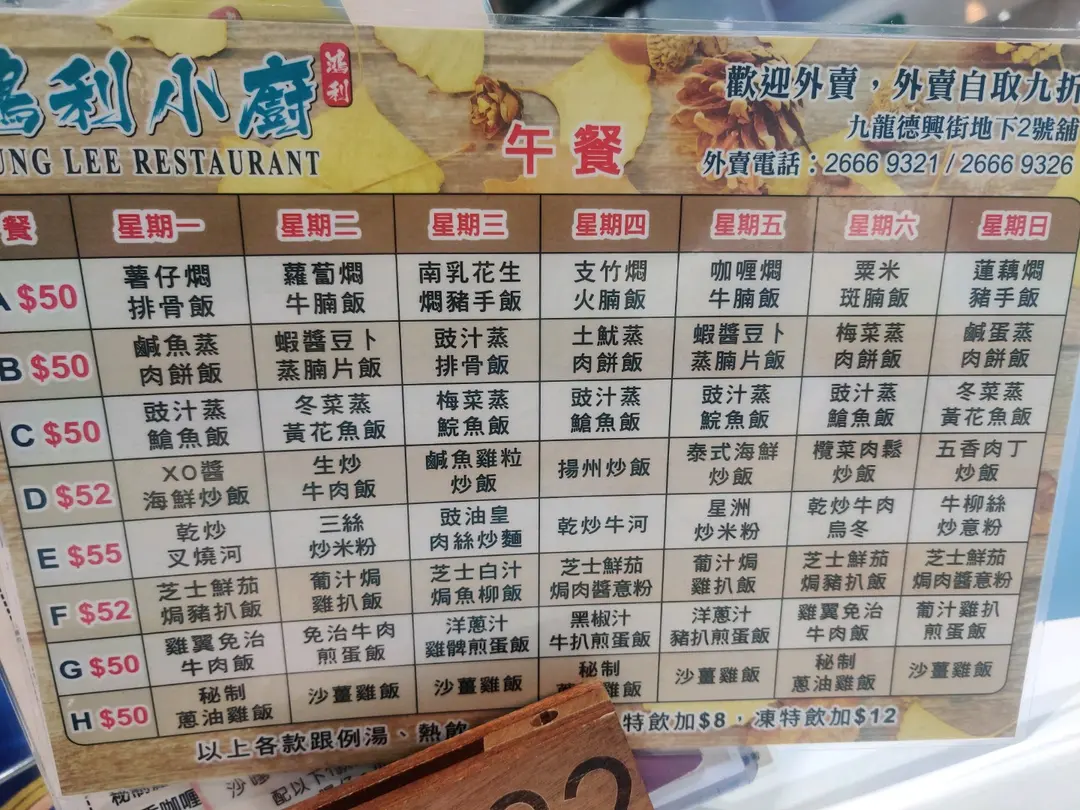 鴻利小廚 鴻利
UNG LEE RESTAURANT
午餐
歡迎外賣，外賣自取九折
九龍德興街地下2號舖
外賣電話：2666 9321 / 2666 9326
餐 星期一 星期二 星期三 星期四 星期五 星期六 星期日
A $50
薯仔燜
排骨飯
蘿蔔燜
牛腩飯
南乳花生
燜豬手飯
支竹燜
火腩飯
咖喱燜
牛腩飯
粟米
斑腩飯
蓮藕燜
豬手飯
B $50
鹹魚蒸
肉餅飯
蝦醬豆卜
蒸腩片飯
豉汁蒸
排骨飯
土魷蒸
肉餅飯
蝦醬豆卜
蒸腩片飯
梅菜蒸
肉餅飯
鹹蛋蒸
肉餅飯
C $50
豉汁蒸
鯧魚飯
冬菜蒸
黃花魚飯
梅菜蒸
鯇魚飯
豉汁蒸
鯧魚飯
豉汁蒸
鯇魚飯
豉汁蒸
鯧魚飯
冬菜蒸
黃花魚飯
D $52
XO醬
海鮮炒飯
生炒
牛肉飯
鹹魚雞粒
炒飯
揚州炒飯
泰式海鮮
炒飯
欖菜肉鬆
炒飯
五香肉丁
炒飯
E $55
乾炒
叉燒河
三絲
炒米粉
豉油皇
肉絲炒麵
乾炒牛河
星洲
炒米粉
乾炒牛肉
烏冬
牛柳絲
炒意粉
F $52
芝士鮮茄
焗豬扒飯
葡汁焗
雞扒飯
芝士白汁
焗魚柳飯
芝士鮮茄
焗肉醬意粉
葡汁焗
雞扒飯
芝士鮮茄
焗豬扒飯
芝士鮮茄
焗肉醬意粉
G $50
雞翼免治
牛肉飯
免治牛肉
煎蛋飯
洋蔥汁
雞髀煎蛋飯
黑椒汁
牛扒煎蛋飯
洋蔥汁
豬扒煎蛋飯
雞翼免治
牛肉飯
葡汁雞扒
煎蛋飯
H $50
秘制
蔥油雞飯
沙薑雞飯
沙薑雞飯
秘制
雞飯
沙薑雞飯
秘制
蔥油雞飯
沙薑雞飯
以上各款跟例湯、熱飲 特飲加$8，凍特飲加$12
配以下
咖喱